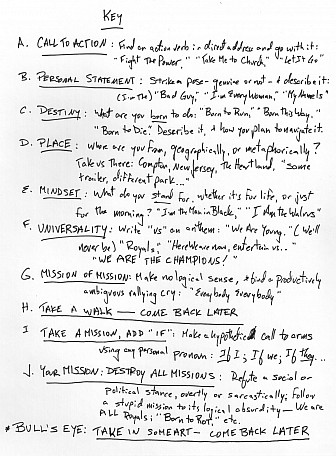 KEY
A. CALL TO ACTION: Find an action verb in direct address and go with it:
"Fight The Power," "Take Me to Church," "Let It Go"
B. PERSONAL STATEMENT: Strike a pose - genuine or not - & describe it:
(I'm The) "Bad Guy," "I'm Every Woman," "My Name Is"
C. DESTINY: What are you born to do: "Born to Run," "Born this Way."
"Born to Die." Describe it, & how you plan to navigate it.
D. PLACE: Where are you from, geographically, or metaphorically?
Take us There: Compton, New Jersey, The Heartland, "Same
trailer, different park..."
E. MINDSET: What do you stand for, whether it's for life, or just
for the morning? "I'm the Man in Black," "I Am the Walrus"
F. UNIVERSALITY: Write "us" an anthem: "We Are Young," "(We'll
never be) "Royals," "Here we are now, entertain us.."
"WE ARE THE CHAMPIONS!"
G. MISSION OF MISSION: Make no logical sense, & find a productively
ambiguous rallying cry: "Everybody Everybody"
H. TAKE A WALK — COME BACK LATER
I TAKE A MISSION, ADD "IF": Make a hypothetical call to arms
using any personal pronoun: If I; If we; If they...
J. YOUR MISSION: DESTROY ALL MISSIONS: Refute a social or
political stance, overtly or sarcastically; Follow
a stupid mission to its logical absurdity — We are
ALL Royals; "Born to Rot," etc.
* BULL'S EYE: TAKE IN SOME ART - COME BACK LATER